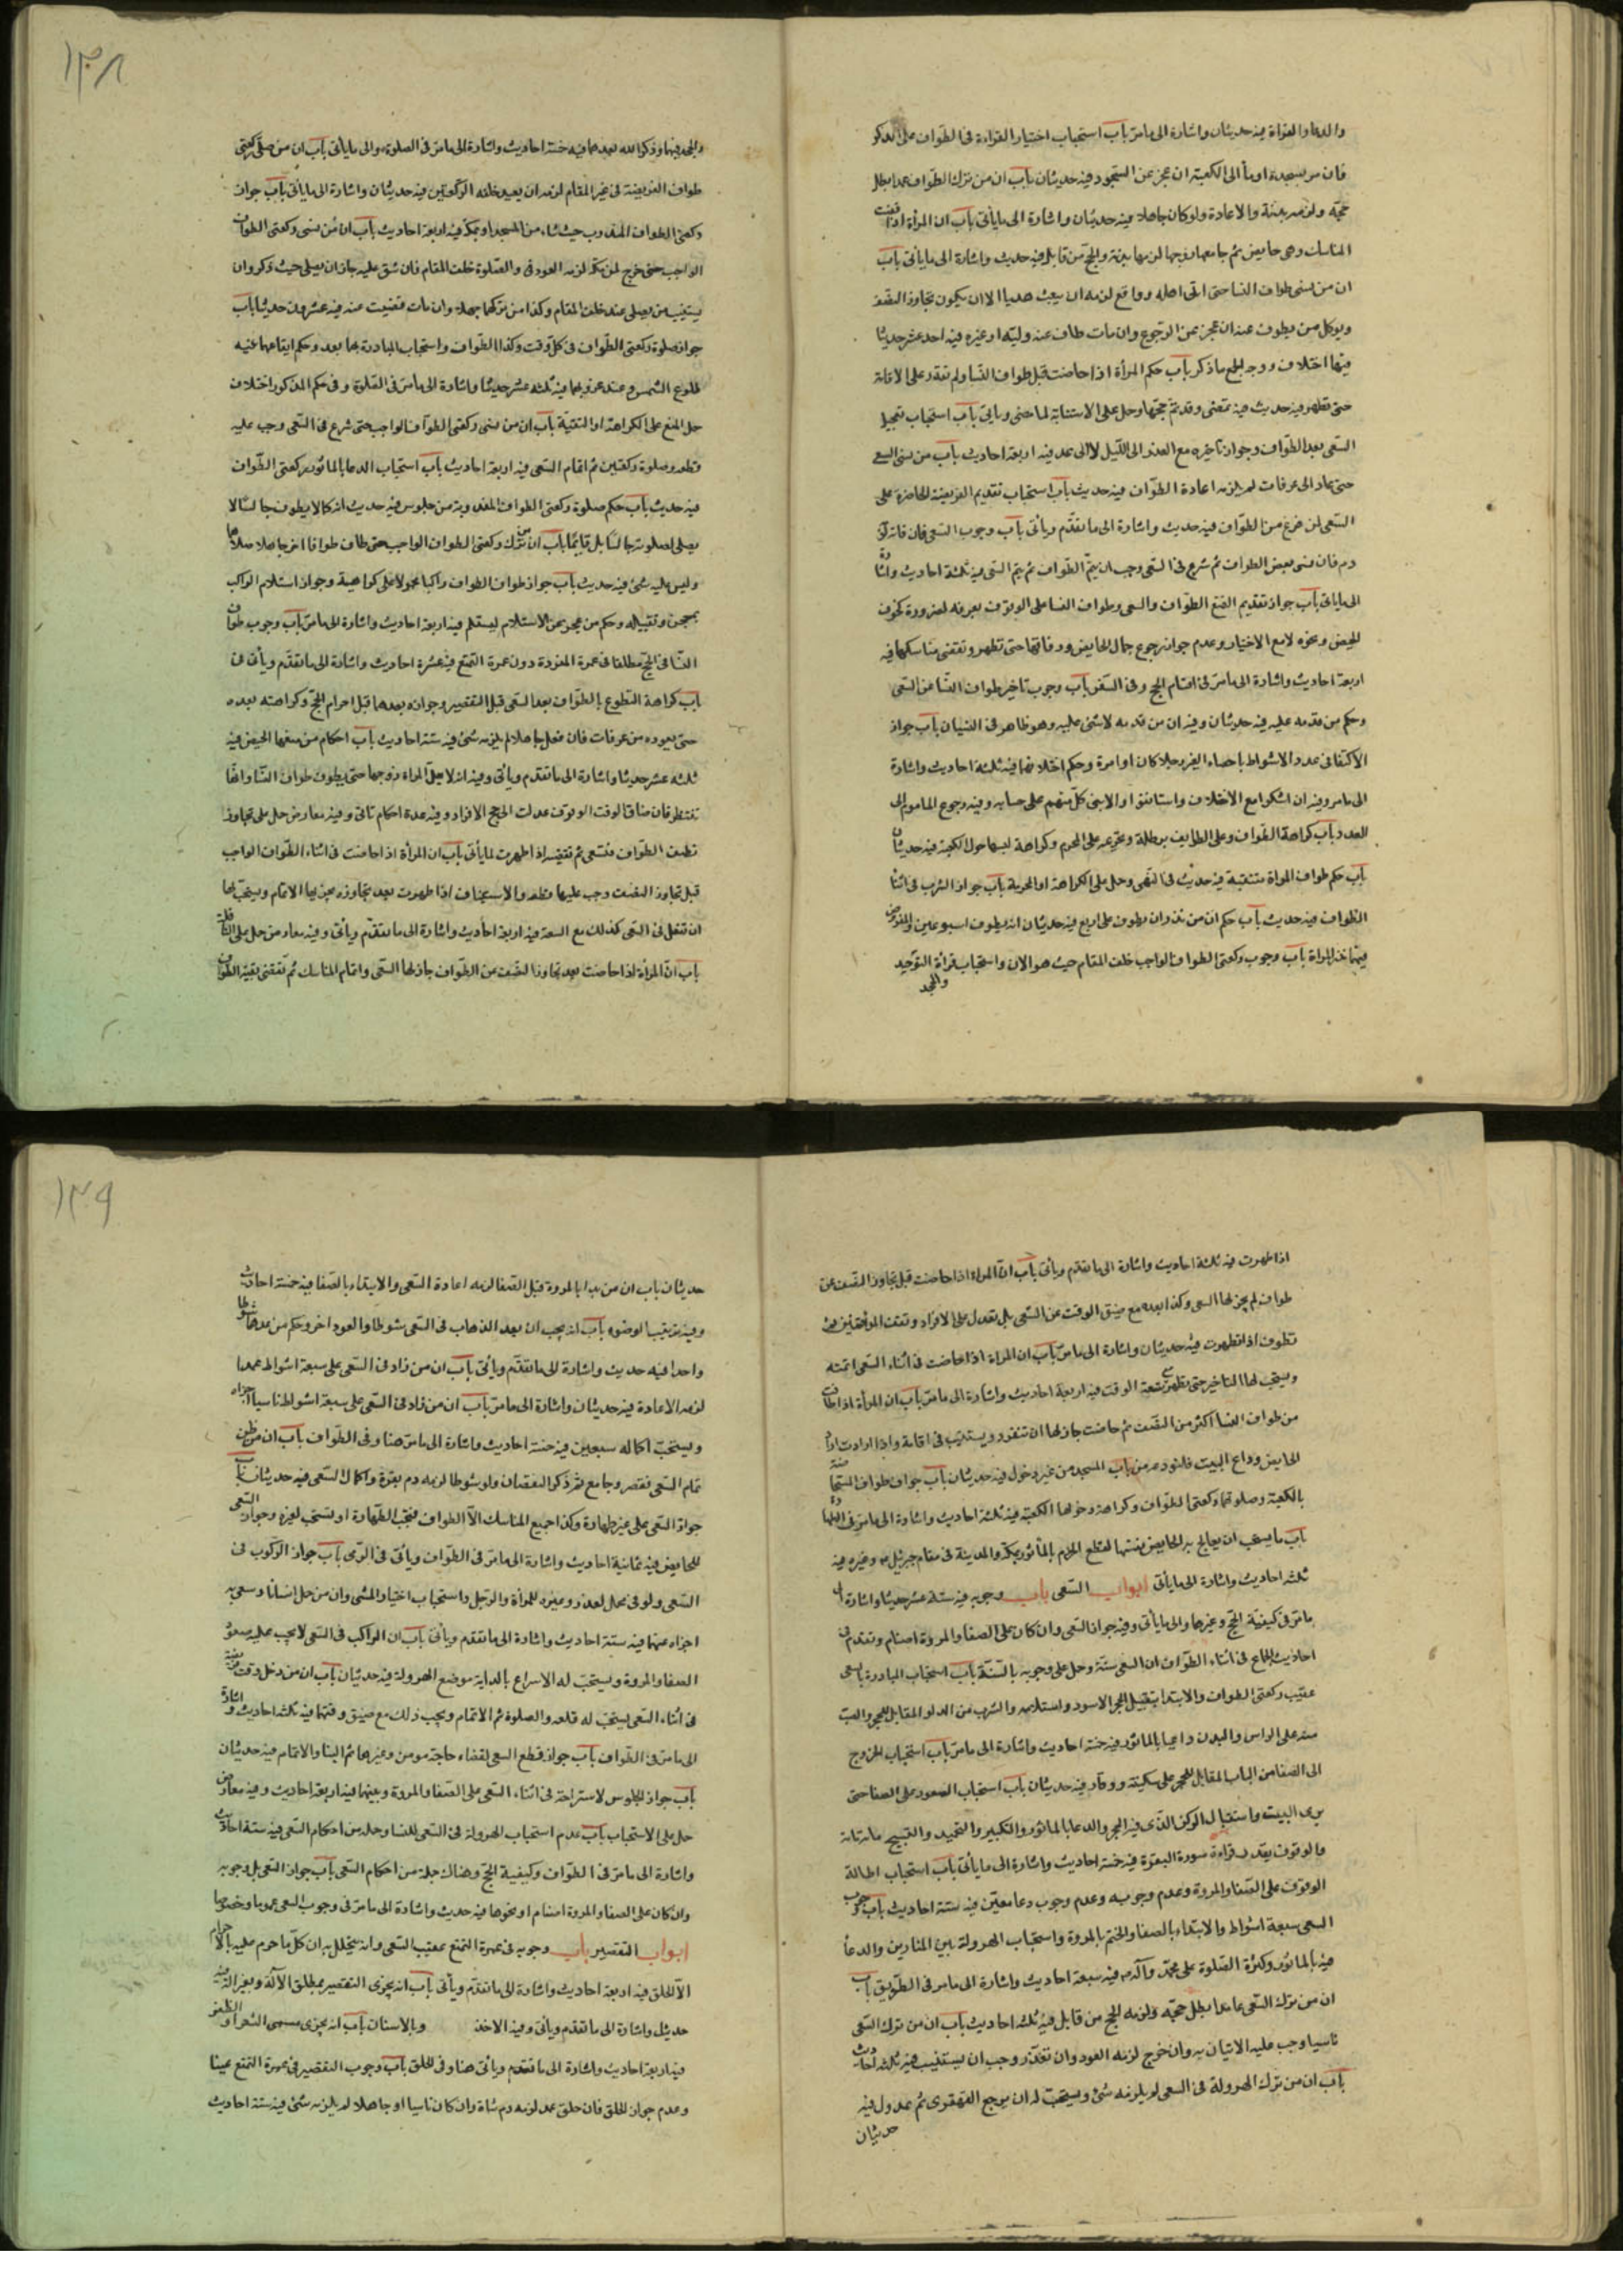 والدعا والقراة فيه حديثان واشارة الى ما مر باب استحباب اختيار القراءة فى الطواف على الذكر
فان مر بسجدة اومأ الى الكعبة ان عجز عن السجود فيه حديثان باب ان من ترك الطواف عمدا بطل
حجه ولزمه بدنة والاعادة ولو كان جاهلا فيه حديثان واشارة الى ما يأتى باب ان المرأة اذا قضت
المناسك وهى حايض ثم جامعها زوجها لزمها بدنة والحج من قابل فيه حديث واشارة الى ما يأتى باب
ان من نسى طواف النسا حتى اتى اهله وواقع لزمه ان يبعث هديا الا ان يكون تجاوز النصف
ويوكل من يطوف عنه ان عجز عن الرجوع وان مات طاف عنه وليه او غيره فيه احد عشر حديثا
فيها اختلاف ووجه الجمع ما ذكر باب حكم المرأة اذا حاضت قبل طواف النسا ولم تقدر على الاقامة
حتى تطهر فيه حديث فيه تمضى وقد تم حجها وحمل على الاستنابة لما مضى ويأتى باب استحباب تعجيل
السعى بعد الطواف وجواز تاخيره مع العذر الى الليل لا الى غد فيه اربعة احاديث باب من نسى السعى
حتى عاد الى عرفات لم يلزمه اعادة الطواف فيه حديث باب استحباب تقديم الفريضة الحاضرة على
السعى لمن فرغ من الطواف فيه حديث واشارة الى ما تقدم ويأتى باب وجوب السعى فان فاته لزمه
دم فان نسى بعض الطواف ثم شرع فى السعى وجب ان يتم الطواف ثم يتم السعى فيه ثلثة احاديث واشارة
الى ما ياتى باب جواز تقديم المتمتع الطواف والسعى وطواف النسا على الوقوف بعرفة لضرورة كخوف
الحيض ونحوه لا مع الاختيار وعدم جواز رجوع جمال الحايض ورفاقتها حتى تطهر وتقضى مناسكها فيه
اربعة احاديث واشارة الى ما مر فى اقسام الحج وفى السفر باب وجوب تاخير طواف النسا عن السعى
وحكم من قدمه عليه فيه حديثان وفيه ان من قدمه لا شئ عليه وهو ظاهر فى النسيان باب جواز
الاكتفا فى عدد الاشواط باحصاء الغير رجلا كان او امرة وحكم اختلافهما فيه ثلثة احاديث واشارة
الى ما مر وفيه ان اشكوا مع الاختلاف واستانفوا والا بنى كل منهم على حسابه وفيه رجوع الماموم الى
العدد باب كراهة الطواف وعلى الطايف برطلة وتحريمه على المحرم وكراهة لبسها حول الكعبة فيه حديثان
باب حكم طواف المراة متنقبة فيه حديث فى النهى وحمل على الكراهة او المحرمة باب جواز الشرب فى اثناء
الطواف فيه حديث باب حكم ان من نذر ان يطوف على اربع فيه حديثان انه يطوف اسبوعين والمفروض
فيهما نذر المراة باب وجوب ركعتى الطواف الواجب خلف المقام حيث هو الان واستحباب قرأة التوحيد
والجحد
١٣٨
والجحد فيهما وذكر الله بعدهما فيه خمسة احاديث واشارة الى ما مر فى الصلوة والى ما يأتى باب ان من صلى ركعتى
طواف الفريضة فى غير المقام لزمه ان يعيد خلفه الركعتين فيه حديثان واشارة الى ما يأتى باب جواز
ركعتى الطواف المندوب حيث شاء من المسجد او بمكة فيه اربعة احاديث باب ان من نسى ركعتى الطواف
الواجب حتى خرج من مكة لزمه العود فى والصلوة خلف المقام فان شق عليه جاز ان يصلى حيث ذكر وان
يستنيب من يصلى عنه خلف المقام وكذا من تركهما جهلا وان مات قضيت عنه فيه عشرون حديثا باب
جواز صلوة ركعتى الطواف فى كل وقت وكذا الطواف واستحباب المبادرة بهما بعده وحكم ايقاعهما عنيه
طلوع الشمس وعند غروبها فيه ثلثه عشر حديثا واشارة الى ما مر فى الصلوة وفى حكم المذكور اختلاف
حمل المنع على الكراهة او التقية باب ان من نسى ركعتى الطواف الواجب حتى شرع فى السعى وجب عليه
قطعه وصلوة ركعتين ثم اتمام السعى فيه اربعة احاديث باب استحباب الدعا بالماثور بعد ركعتى الطواف
فيه حديث باب حكم صلوة ركعتى الطواف المندوبة من جلوس فيه حديث انه كما لا يطوف جالسا لا
يصلى لصلوته جالسا بل قايما باب ان من ترك ركعتى الطواف الواجب حتى طاف طوافا اخر جاهلا صلاهما
وليس عليه شئ فيه حديث باب جواز طواف الطواف راكبا محمولا على كراهية وجواز استلام الراكب
بمحجن وتقبيله وحكم من عجز عن الاستلام ليستلم فيه اربعة احاديث واشارة الى ما مر باب وجوب طواف
النسا فى الحج مطلقا فى عمرة المفردة دون عمرة التمتع فيه عشرة احاديث واشارة الى ما تقدم ويأتى فى
باب كراهة التطوع بالطواف بعد السعى قبل التقصير وجوازه بعدهما قبل احرام الحج وكراهته بعده
حتى يعود من عرفات فان فعل جاهلا لم يلزمه شئ فيه ستة احاديث باب احكام من منعها الحيض فيه
ثلثه عشر حديثا واشارة الى ما تقدم ويأتى وفيه انه لا يحل المراة زوجها حتى يطوف طواف النسا وانها
تنتظر فان ضاق الوقت الوقوف عدلت الى حج الافراد وفيه عدة احكام تاتى وفيه معارض حمل على تجاوز
نصف الطواف فتسعى ثم تقضيه اذا طهرت لما يأتى باب ان المرأة اذا حاضت فى اثناء الطواف الواجب
قبل تجاوز النصف وجب عليها قطعه والاستيناف اذا طهرت بعد تجاوزه يجزيها الاتمام ويستحب لها
ان تنتقل فى السعى كذلك مع السعة فيه اربعة احاديث واشارة الى ما تقدم ويأتى وفيه معارض حمل على النافلة
باب ان المرأة اذا حاضت بعد تجاوز النصف من الطواف جاز لها السعى واتمام المناسك ثم تقضى بقية الطواف
اذا طهرت فيه ثلثة احاديث واشارة الى ما تقدم ويأتى باب ان المراة اذا حاضت قبل تجاوز النصف من
طواف لم يجز لها السعى وكذا بعده مع ضيق الوقت عن السعى بل تعدل على الافراد وتقف الموقفين ثم
تطوف اذا تطهرت فيه حديثان واشارة الى ما مر باب ان المراة اذا حاضت فى اثناء السعى اتمته
ويستحب لها التاخير حتى تطهر مع سعة الوقت فيه اربعة احاديث واشارة الى ما مر باب ان المرأة اذا طافت
من طواف النسا اكثر من النصف ثم حاضت جاز لها ان تنفرد ويستنيب فى اقامة واذا ارادت
الحايض وداع البيت فلتودعه من باب المسجد من غير دخول فيه حديثان باب جواز طواف المستحاضة
بالكعبة وصلوتها ركعتى الطواف وكراهة دخولها الكعبة فيه ثلثة احاديث واشارة الى ما مر فى الطهارة
باب ما يستحب ان يعالج به الحايض نفسها لقطع الدم بالمأثور بمكة والمدينة فى مقام جبرئيل ع وغيره فيه
ثلثه احاديث واشارة الى ما يأتى ابواب السعى باب وجوبه فيه ستة عشر حديثا واشارة الى
ما مر فى كيفية الحج وغيرها والى ما يأتى وفيه جواز السعى وان كان على الصفا والمروة اصنام وتقدم فى
احاديث الجماع فى اثناء الطواف ان السعى سنة وحمل على وجوبه بالسنة باب استحباب المبادرة بالسعى
عقيب ركعتى الطواف والابتدا بتقبيل الحجر الاسود واستلامه والشرب من الدلو المقابل للحجر والصب
منه على الراس والبدن داعيا بالماثور فيه خمسة احاديث واشارة الى ما مر باب استحباب الخروج
الى الصفا من الباب المقابل للحجر على سكينة ووقار فيه حديثان باب استحباب الصعود على الصفا حتى
يرى البيت واستقبال الركن الذى فيه الحجر والدعا بالماثور والتكبير والتحميد والتسبيح مائة مائة
والوقوف بقدر قراءة سورة البقرة فيه خمسة احاديث واشارة الى ما يأتى باب استحباب اطالة
الوقوف على الصفا والمروة وعدم وجوبه وعدم وجوب دعا معين فيه ستة احاديث باب وجوب
السعى سبعة اشواط والابتداء بالصفا والختم بالمروة واستحباب الهرولة بين المنارين والدعا
فيه بالماثور وكثرة الصلوة على محمد وآله فيه سبعة احاديث واشارة الى ما مر فى الطريق باب
ان من ترك السعى عامدا بطل حجه ولزمه الحج من قابل فيه ثلثه احاديث باب ان من ترك السعى
ناسيا وجب عليه الاتيان به وان خرج لزمه العود وان تعذر وجب ان يستنيب فيه ثلثه احاديث
باب ان من ترك الهرولة فى السعى لم يلزمه شئ ويستحب له ان يرجع القهقرى ثم يهرول فيه
حديثان
١٣٩
حديثان باب ان من بدا بالمروة قبل الصفا لزمه اعادة السعى والابتداء بالصفا فيه خمسة احاديث
وفيه ترتيب الوضوء باب انه يجب ان يعد الذهاب فى السعى شوطا والعود اخر وحكم من عدهما شوطا
واحدا فيه حديث واشارة الى ما تقدم ويأتى باب ان من زاد فى السعى على سبعة اشواط عمدا
لزمه الاعادة فيه حديثان واشارة الى ما مر باب ان من زاد فى السعى على سبعة اشواط ناسيا اجزاه
ويستحب اكماله سبعين فيه خمسة احاديث واشارة الى ما مر هنا وفى الطواف باب ان من ظن
تمام السعى فقصر وجامع ثم ذكر النقصان ولو شوطا لزمه دم بقرة واكمال السعى فيه حديثان باب
جواز السعى على غير طهارة وكذا جميع المناسك الا الطواف فتجب الطهارة او تستحب لغيره وجواز السعى
للحايض فيه ثمانية احاديث واشارة الى ما مر فى الطواف ويأتى فى الرمى باب جواز الركوب فى
السعى ولو فى محمل لعذر وغيره للمرأة والرجل واستحباب اختيار المشى وان من حمل انسانا وسعى به
اجزاه عنهما فيه ستة احاديث واشارة الى ما تقدم ويأتى باب ان الراكب فى السعى لا يجب عليه صعود
الصفا والمروة ويستحب له الاسراع بالدابة موضع الهرولة فيه حديثان باب ان من دخل وقت فريضة
فى اثناء السعى يستحب له قطعه والصلوة ثم الاتمام ويجب ذلك مع ضيق وقتها فيه ثلثه احاديث واشارة
الى ما مر فى الطواف باب جواز قطع السعى لقضاء حاجة مومن وغيرها ثم البنا والاتمام فيه حديثان
باب جواز الجلوس للاستراحة فى اثناء السعى على الصفا والمروة وبينهما فيه اربعة احاديث وفيه معارض
حمل على الاستحباب باب عدم استحباب الهرولة فى السعى للنسا وجملة من احكام السعى فيه ستة احاديث
واشارة الى ما مر فى الطواف وكيفية الحج وهناك جلة من احكام السعى باب جواز السعى بل وجوبه
وان كان على الصفا والمروة اصنام او نحوها فيه حديث واشارة الى ما مر فى وجوب السعى عموما وخصوصا
ابواب التقصير باب وجوبه فى عمرة التمتع عقيب السعى وانه يتحلل به ان كل ما حرم عليه بالاحرام
الا الحلق فيه اربعة احاديث واشارة الى ما تقدم ويأتى باب انه يجزى التقصير بمطلق الآلة وبغير الة فيه
حديث واشارة الى ما تقدم ويأتى وفيه الاخذ وبالاسنان باب انه يجزى مسمى الشعر او الظفر
فيه اربعة احاديث واشارة الى ما تقدم ويأتى هنا وفى الحلق باب وجوب التقصير فى عمرة التمتع عينا
وعدم جواز الحلق فان حلق عمدا لزمه دم شاة وان كان ناسيا او جاهلا لم يلزمه شئ فيه ستة احاديث